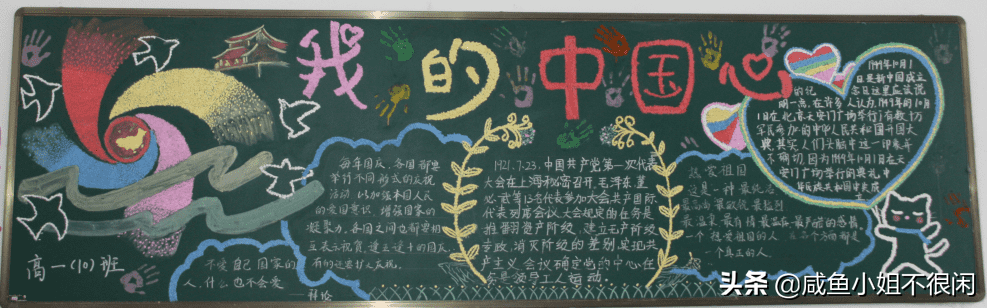 我的中国心
高一(10)班
不爱自己国家的
人,什么也不会爱
——拜伦
每年国庆,各国都要
举行不同形式的庆祝
活动,以加强本国人民
的爱国意识,增强国家的
凝聚力。各国之间也都要相
互表示祝贺,逢五逢十的国庆,
有的还要扩大庆祝。
1921.7.23.中国共产党第一次代表
大会在上海秘密召开,毛泽东董
必武等13名代表参加大会共产国际
代表列席会议大会规定的任务是
推翻资产阶级,建立无产阶级
专政,消灭阶级的差别,实现共
产主义,会议确定当时中心任
务是领导工人运动.
热爱祖国
这是一种最纯洁
最高尚
最温柔、最有情
一个热爱祖国的人
一个真正的人.
1949年10月1
日是新中国成立
的纪念日这里应该说
明一点,在许多人认为,1949年的10月
1日在北京天安门广场举行了有数十万
军民参加的中华人民共和国开国大
典,其实,人们头脑中这一印象并
不确切,因为1949年10月1日在天
安门广场举行的典礼,
头条 @咸鱼小姐不很闲